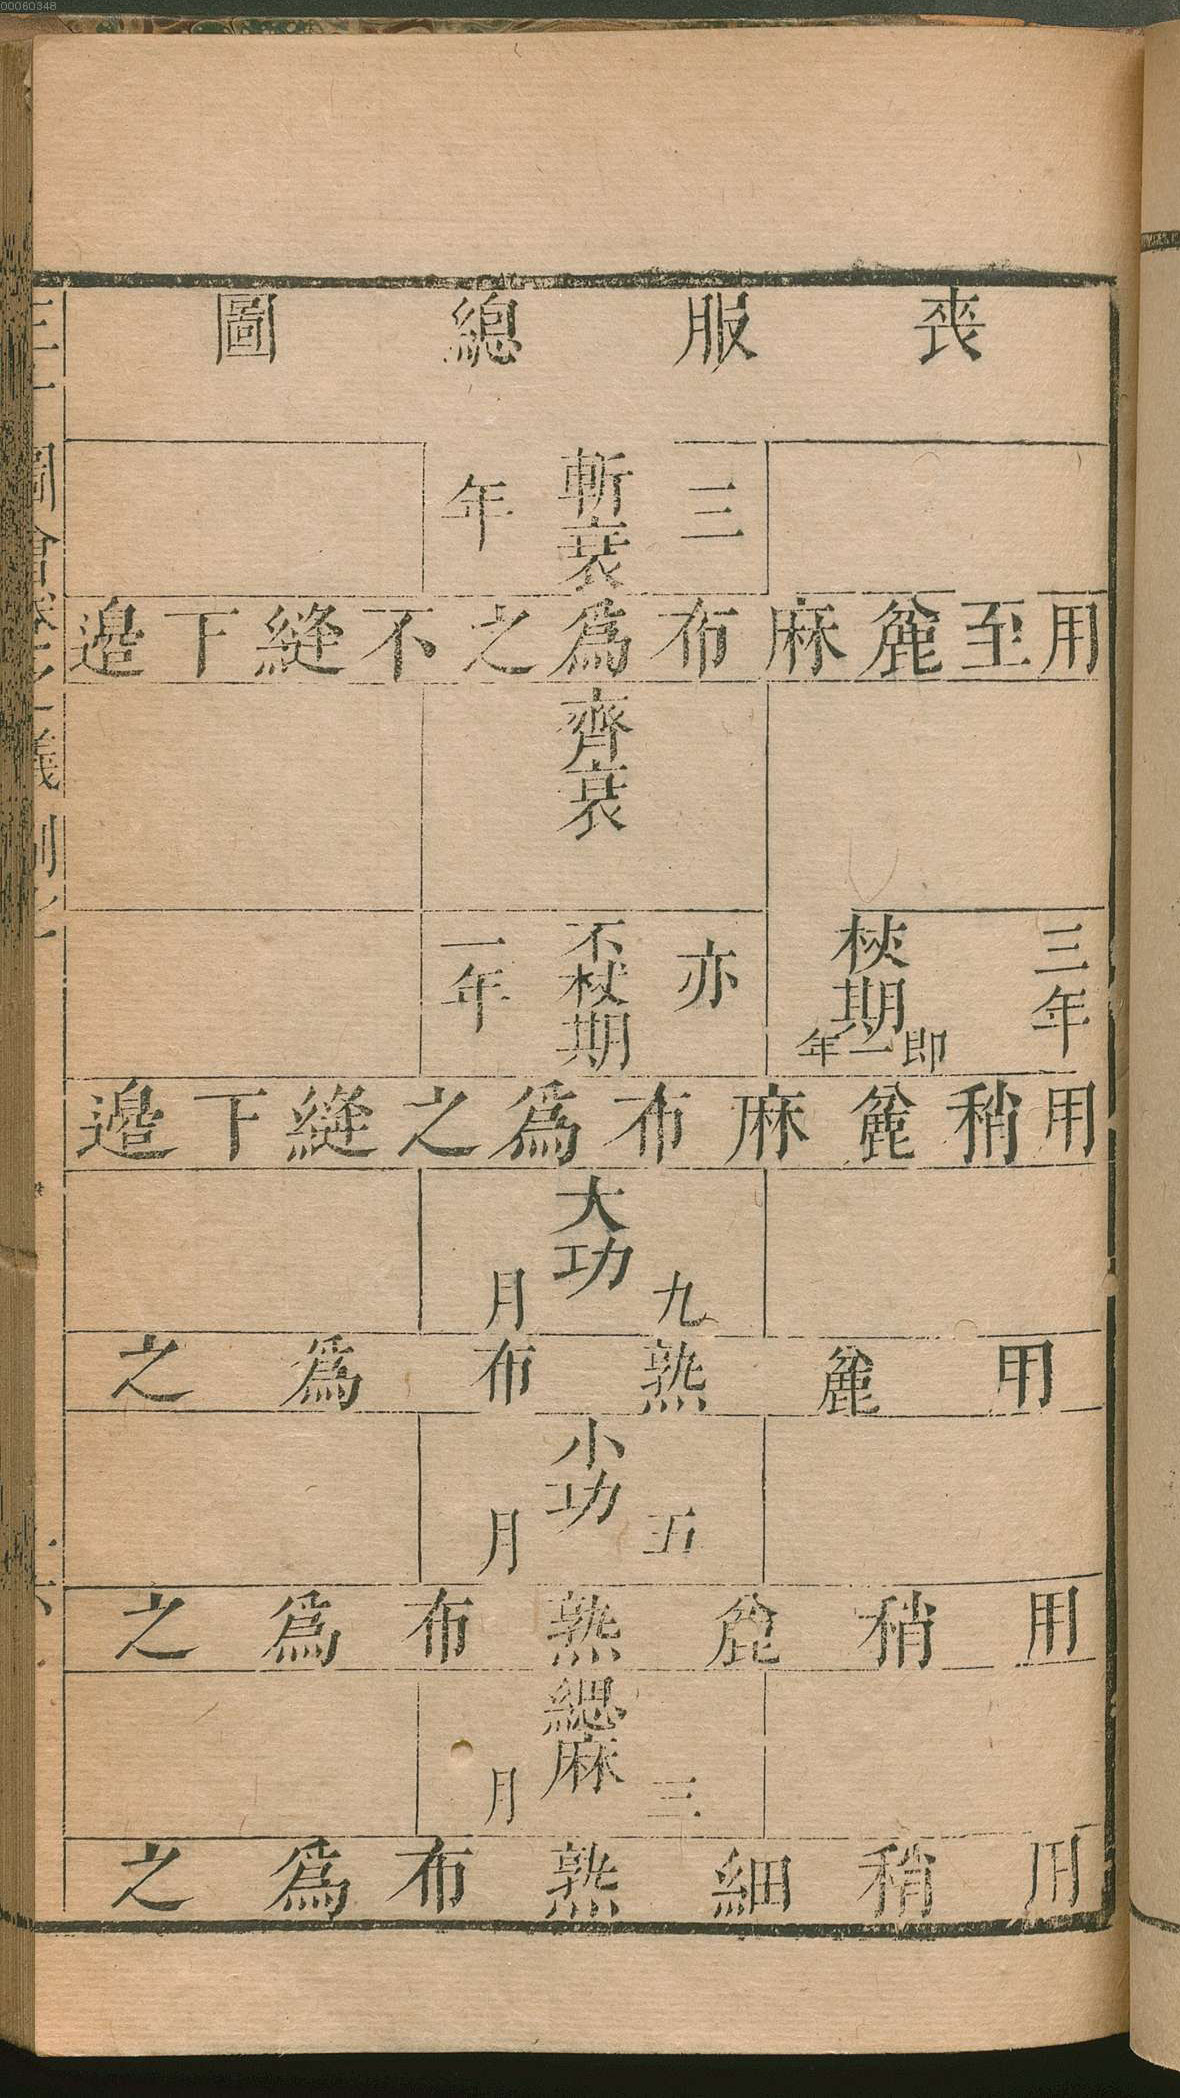 00060348
喪服總圖
三 斬衰 年
用至麄麻布為之不縫下邊
齊衰
三年 杖期 即一年 亦 不杖期 一年
用稍麄麻布為之縫下邊
大功 九月
用麄熟布為之
小功 五月
用稍麄熟布為之
緦麻 三月
用稍細熟布為之